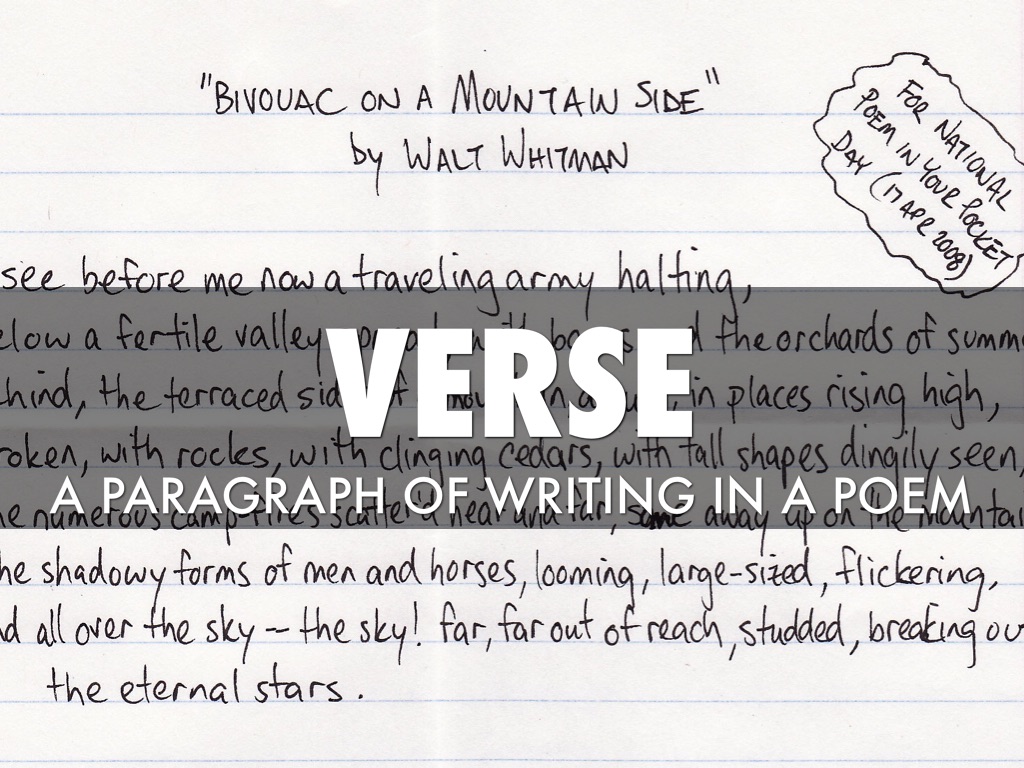 "BIVOUAC ON A MOUNTAIN SIDE"
by WALT WHITMAN
FOR NATIONAL
POEM IN YOUR POCKET
DAY (17 APR 2008)
see before me now a traveling army halting,
elow a fertile valley the orchards of summe
VERSE
hind, the terraced in places rising high,
roken, with rocks, with clinging cedars, with tall shapes dingily seen,
A PARAGRAPH OF WRITING IN A POEM
he numerous camp-fires scatter'd near and far, some away up on the mountai
he shadowy forms of men and horses, looming, large-sized, flickering,
nd all over the sky -- the sky! far, far out of reach, studded, breaking ou
the eternal stars.